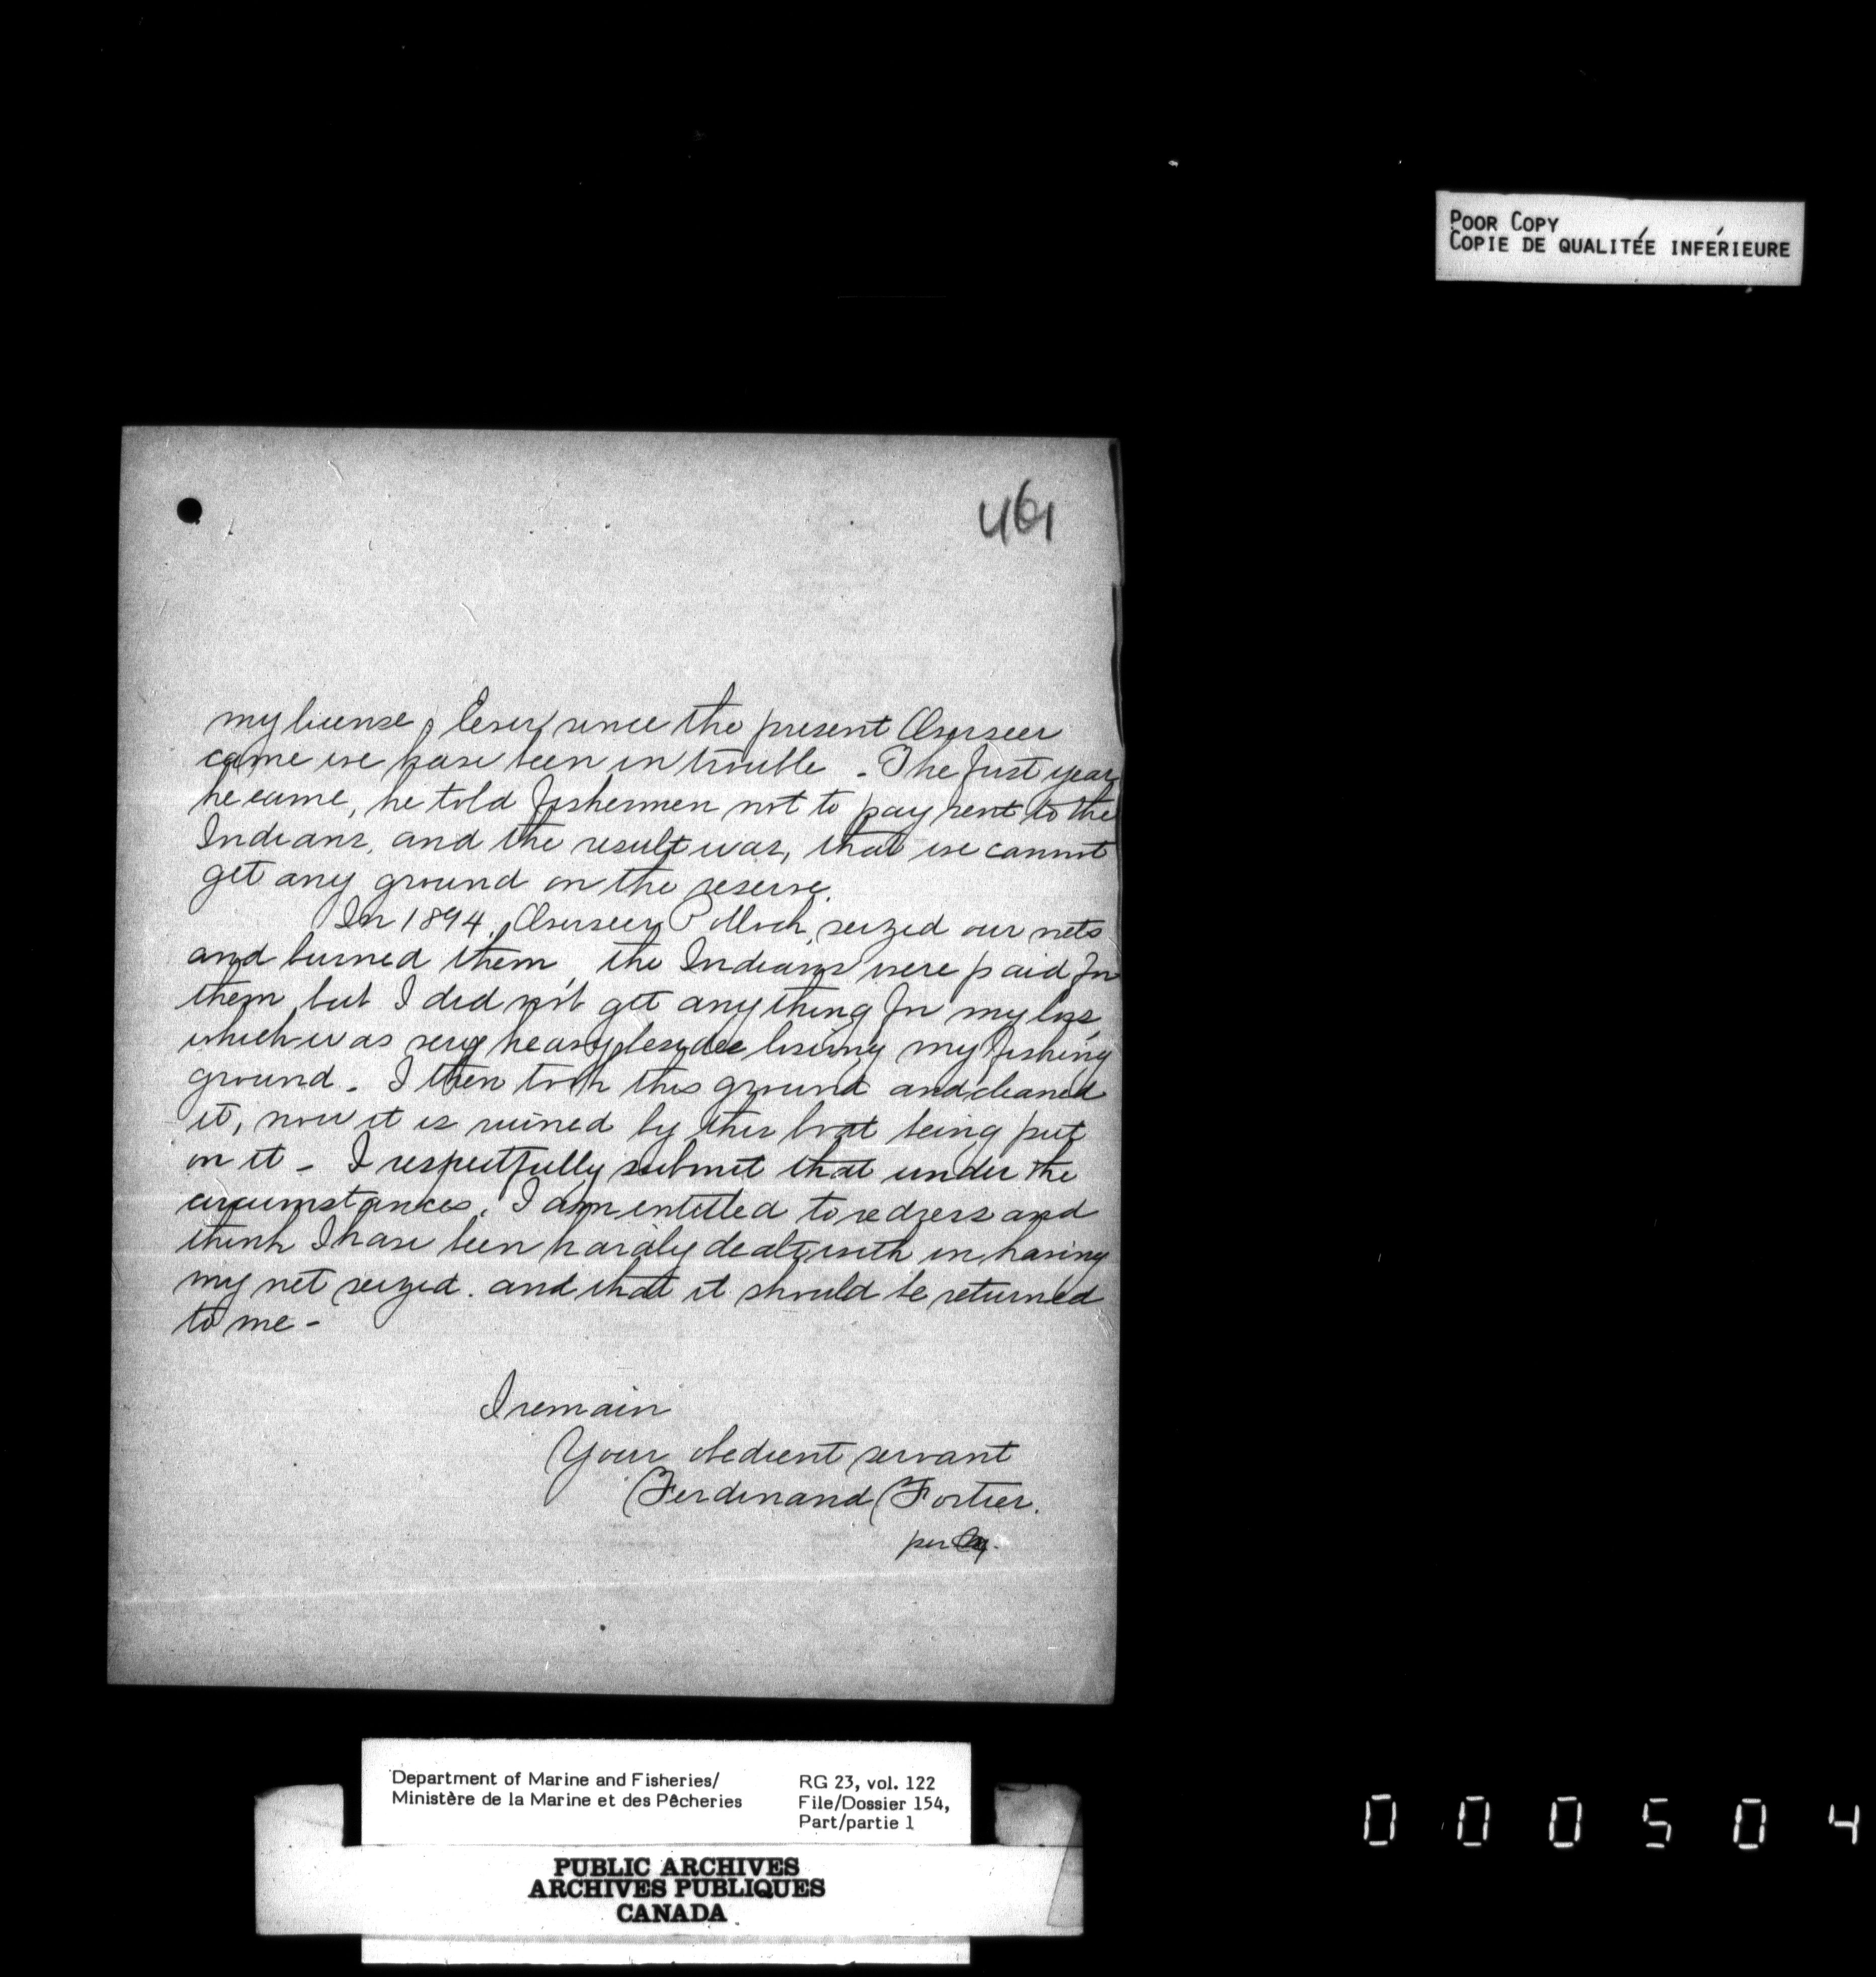 POOR COPY
COPIE DE QUALITÉE INFÉRIEURE
461
my license, Ever since the present Overseer
came we have been in trouble - The first year
he came, he told fishermen not to pay rent to the
Indians, and the result was, that we cannot
get any ground on the reserve.
In 1894, Overseer Pollock, seized our nets
and burned them, the Indians were paid for
them, but I did not get anything for my loss,
which was very heavy besides losing my fishing
ground - I then took this ground and cleaned
it, now it is ruined by this boat being put
on it - I respectfully submit that under the
circumstances, I am entitled to redress and
think I have been hardly dealt with in having
my net seized. and that it should be returned
to me -
I remain
Your obedient servant
Ferdinand Fortier.
per
Department of Marine and Fisheries/
Ministère de la Marine et des Pêcheries
RG 23, vol. 122
File/Dossier 154,
Part/partie 1
PUBLIC ARCHIVES
ARCHIVES PUBLIQUES
CANADA
000504